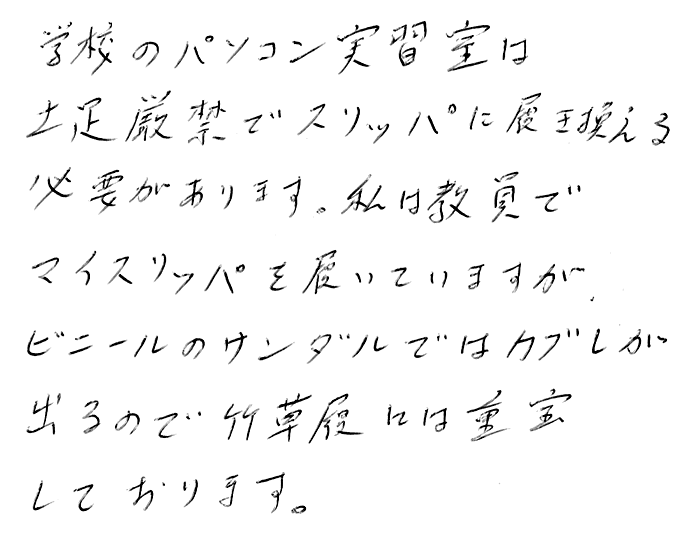 学校のパソコン実習室は
土足厳禁でスリッパに履き換える
必要があります。私は教員で
マイスリッパを履いていますが、
ビニールのサンダルではカブレが
出るので竹草履には重宝
しております。